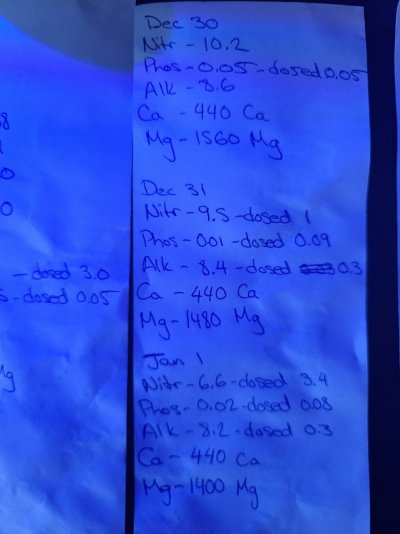 8
0
0
- dosed 3.0
s - dosed 0.05
Mg
Dec 30
Nitr - 10.2
Phos - 0.05 - dosed 0.05
Alk - 8.6
Ca - 440 Ca
Mg - 1560 Mg
Dec 31
Nitr - 9.5 - dosed 1
Phos - 0.01 - dosed 0.09
Alk - 8.4 - dosed 0.3
Ca - 440 Ca
Mg - 1480 Mg
Jan 1
Nitr - 6.6 - dosed 3.4
Phos - 0.02 - dosed 0.08
Alk - 8.2 - dosed 0.3
Ca - 440 Ca
Mg - 1400 Mg